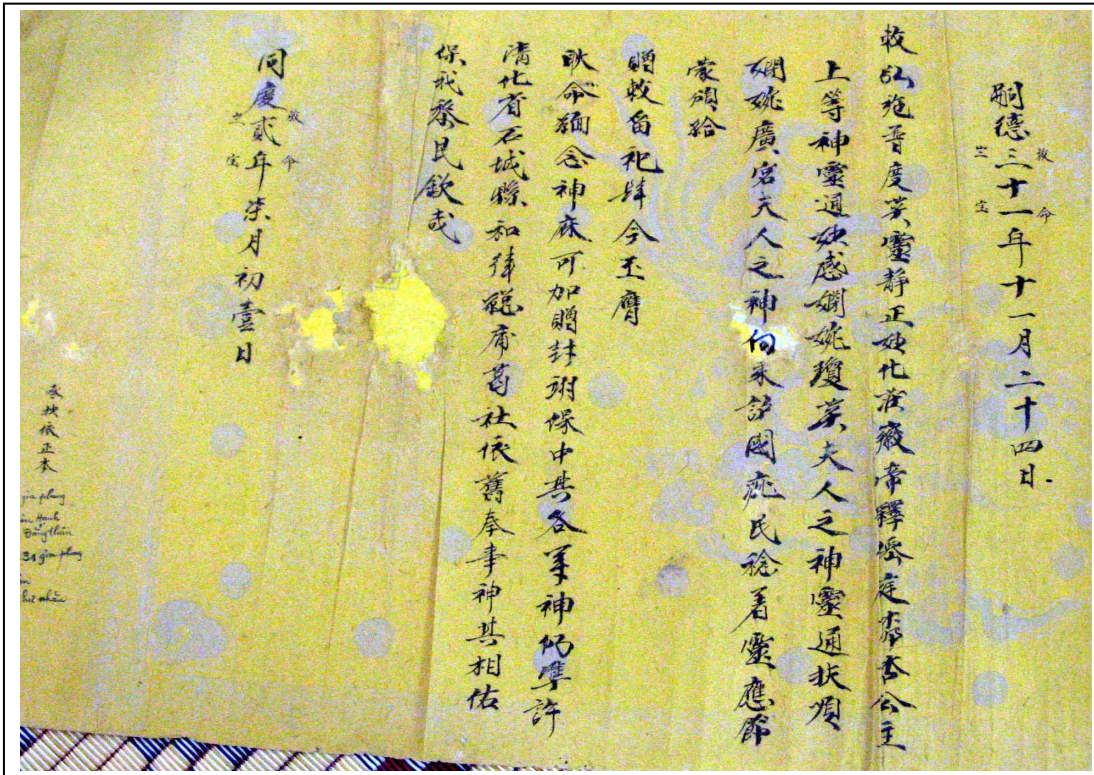 嗣德三十一年十一月二十四日
敕命
之宝
敕弘施普度英靈靜正妙化莊徽帝釋墀庭𣂏香公主
上等神靈通妙感嫻婉瓊英夫人之神靈通扶順
嫻婉廣宮夫人之神向來護國庇民稔著靈應節
蒙頒給
贈敕留祀肆今丕膺
耿命緬念神庥可加贈封翊保中興各等神仍準許
清化省石城縣和律總甫葛社依舊奉事神其相佑
保我黎民欽哉
同慶貳年柒月初壹日
敕命
之宝
承抄依正本
gia phong
Hạnh
Đẳng thần
gia phong